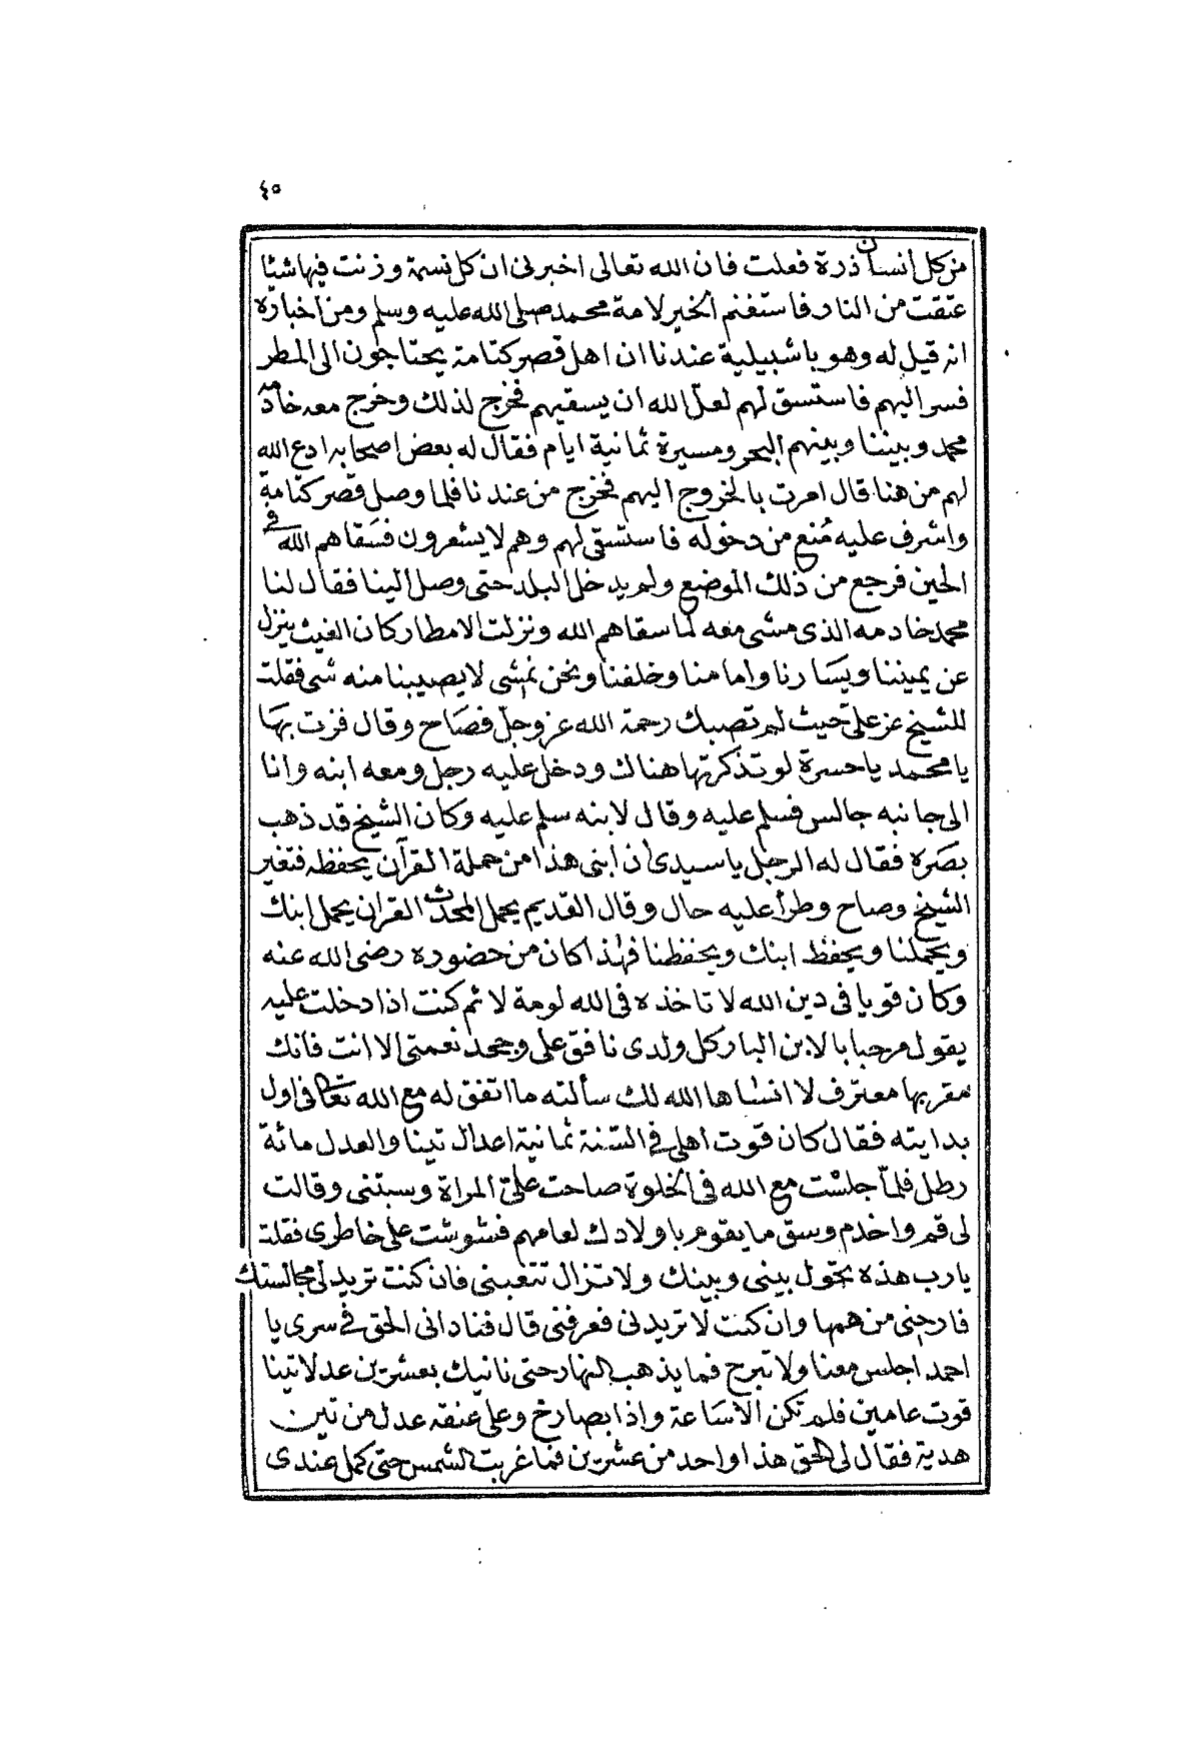 ٤٥
من كل أنسان ذرة فعلت فان الله تعالى اخبرنى ان كل نسمة وزنت فيها شيئا
عتقت من النار فاستغنم الخير لامة محمد صلى الله عليه وسلم ومن اخباره
انه قيل له وهو باشبيلية عندنا ان اهل قصر كتامة يحتاجون الى المطر
فسر اليهم فاستسق لهم لعل الله ان يسقيهم فخرج لذلك وخرج معه خادمه
محمد وبيننا وبينهم البحر ومسيرة ثمانية ايام فقال له بعض اصحابه ادع الله
لهم من هنا قال امرت بالخروج اليهم فخرج من عندنا فلما وصل قصر كتامة
واشرف عليه مُنع من دخوله فاستسقى لهم وهم لا يشعرون فسقاهم الله فى
الحين فرجع من ذلك الموضع ولم يدخل البلد حتى وصل الينا فقال لنا
محمد خادمه الذى مشى معه لما سقاهم الله ونزلت الامطار كان الغيث ينزل
عن يميننا ويسارنا وامامنا وخلفنا ونحن نمشى لا يصيبنا منه شى فقلت
للشيخ عز على حيث لم تصبك رحمة الله عز وجل فصاح وقال فزت بها
يا محمد يا حسرة لو تذكرتها هناك ودخل عليه رجل ومعه ابنه وانا
الى جانبه جالس فسلم عليه وقال لابنه سلم عليه وكان الشيخ قد ذهب
بصره فقال له الرجل يا سيدى ان ابنى هذا من حملة القرآن يحفظه فتغير
الشيخ وصاح وطرأ عليه حال وقال القديم يحمل المحدث القران يحمل ابنك
ويحملنا ويحفظ ابنك ويحفظنا فهذا كان من حضوره رضى الله عنه
وكان قويا فى دين الله لا تاخذه فى الله لومة لائم كنت اذا دخلت عليه
يقول مرحبا بالابن البار كل ولدى نافق على وجحد نعمتى الا انت فانك
مقر بها معترف لا انساها الله لك سألته ما اتفق له مع الله تعالى فى اول
بدايته فقال كان قوت اهلى فى السنة ثمانية اعدال تينا والعدل مائة
رطل فلما جلست مع الله فى الخلوة صاحت علىّ المراة وسبتنى وقالت
لى قم واخدم وسق ما يقوم باولادك لعامهم فشوشت على خاطرى فقلت
يا رب هذه تحول بينى وبينك ولا تزال تتعبنى فان كنت تريد لى مجالستك
فارحنى من همها وان كنت لا تريدنى فعرفنى قال فنادانى الحق فى سرى يا
احمد اجلس معنا ولا تبرح فما يذهب النهار حتى ناتيك بعشرين عدلا تينا
قوت عامين فلم تكن الا ساعة واذا بصارخ وعلى عنقه عدل من تين
هدية فقال لى الحق هذا واحد من عشرين فما غربت الشمس حتى كمل عندى